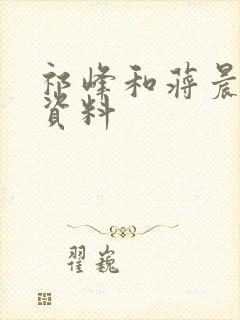 祁峰和蔣晨
資料
翟巍